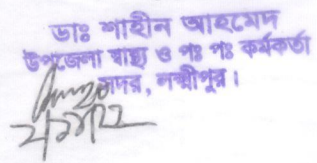 ডাঃ শাহীন আহমেদ
উপজেলা স্বাস্থ্য ও পঃ পঃ কর্মকর্তা
সদর, লক্ষ্মীপুর।